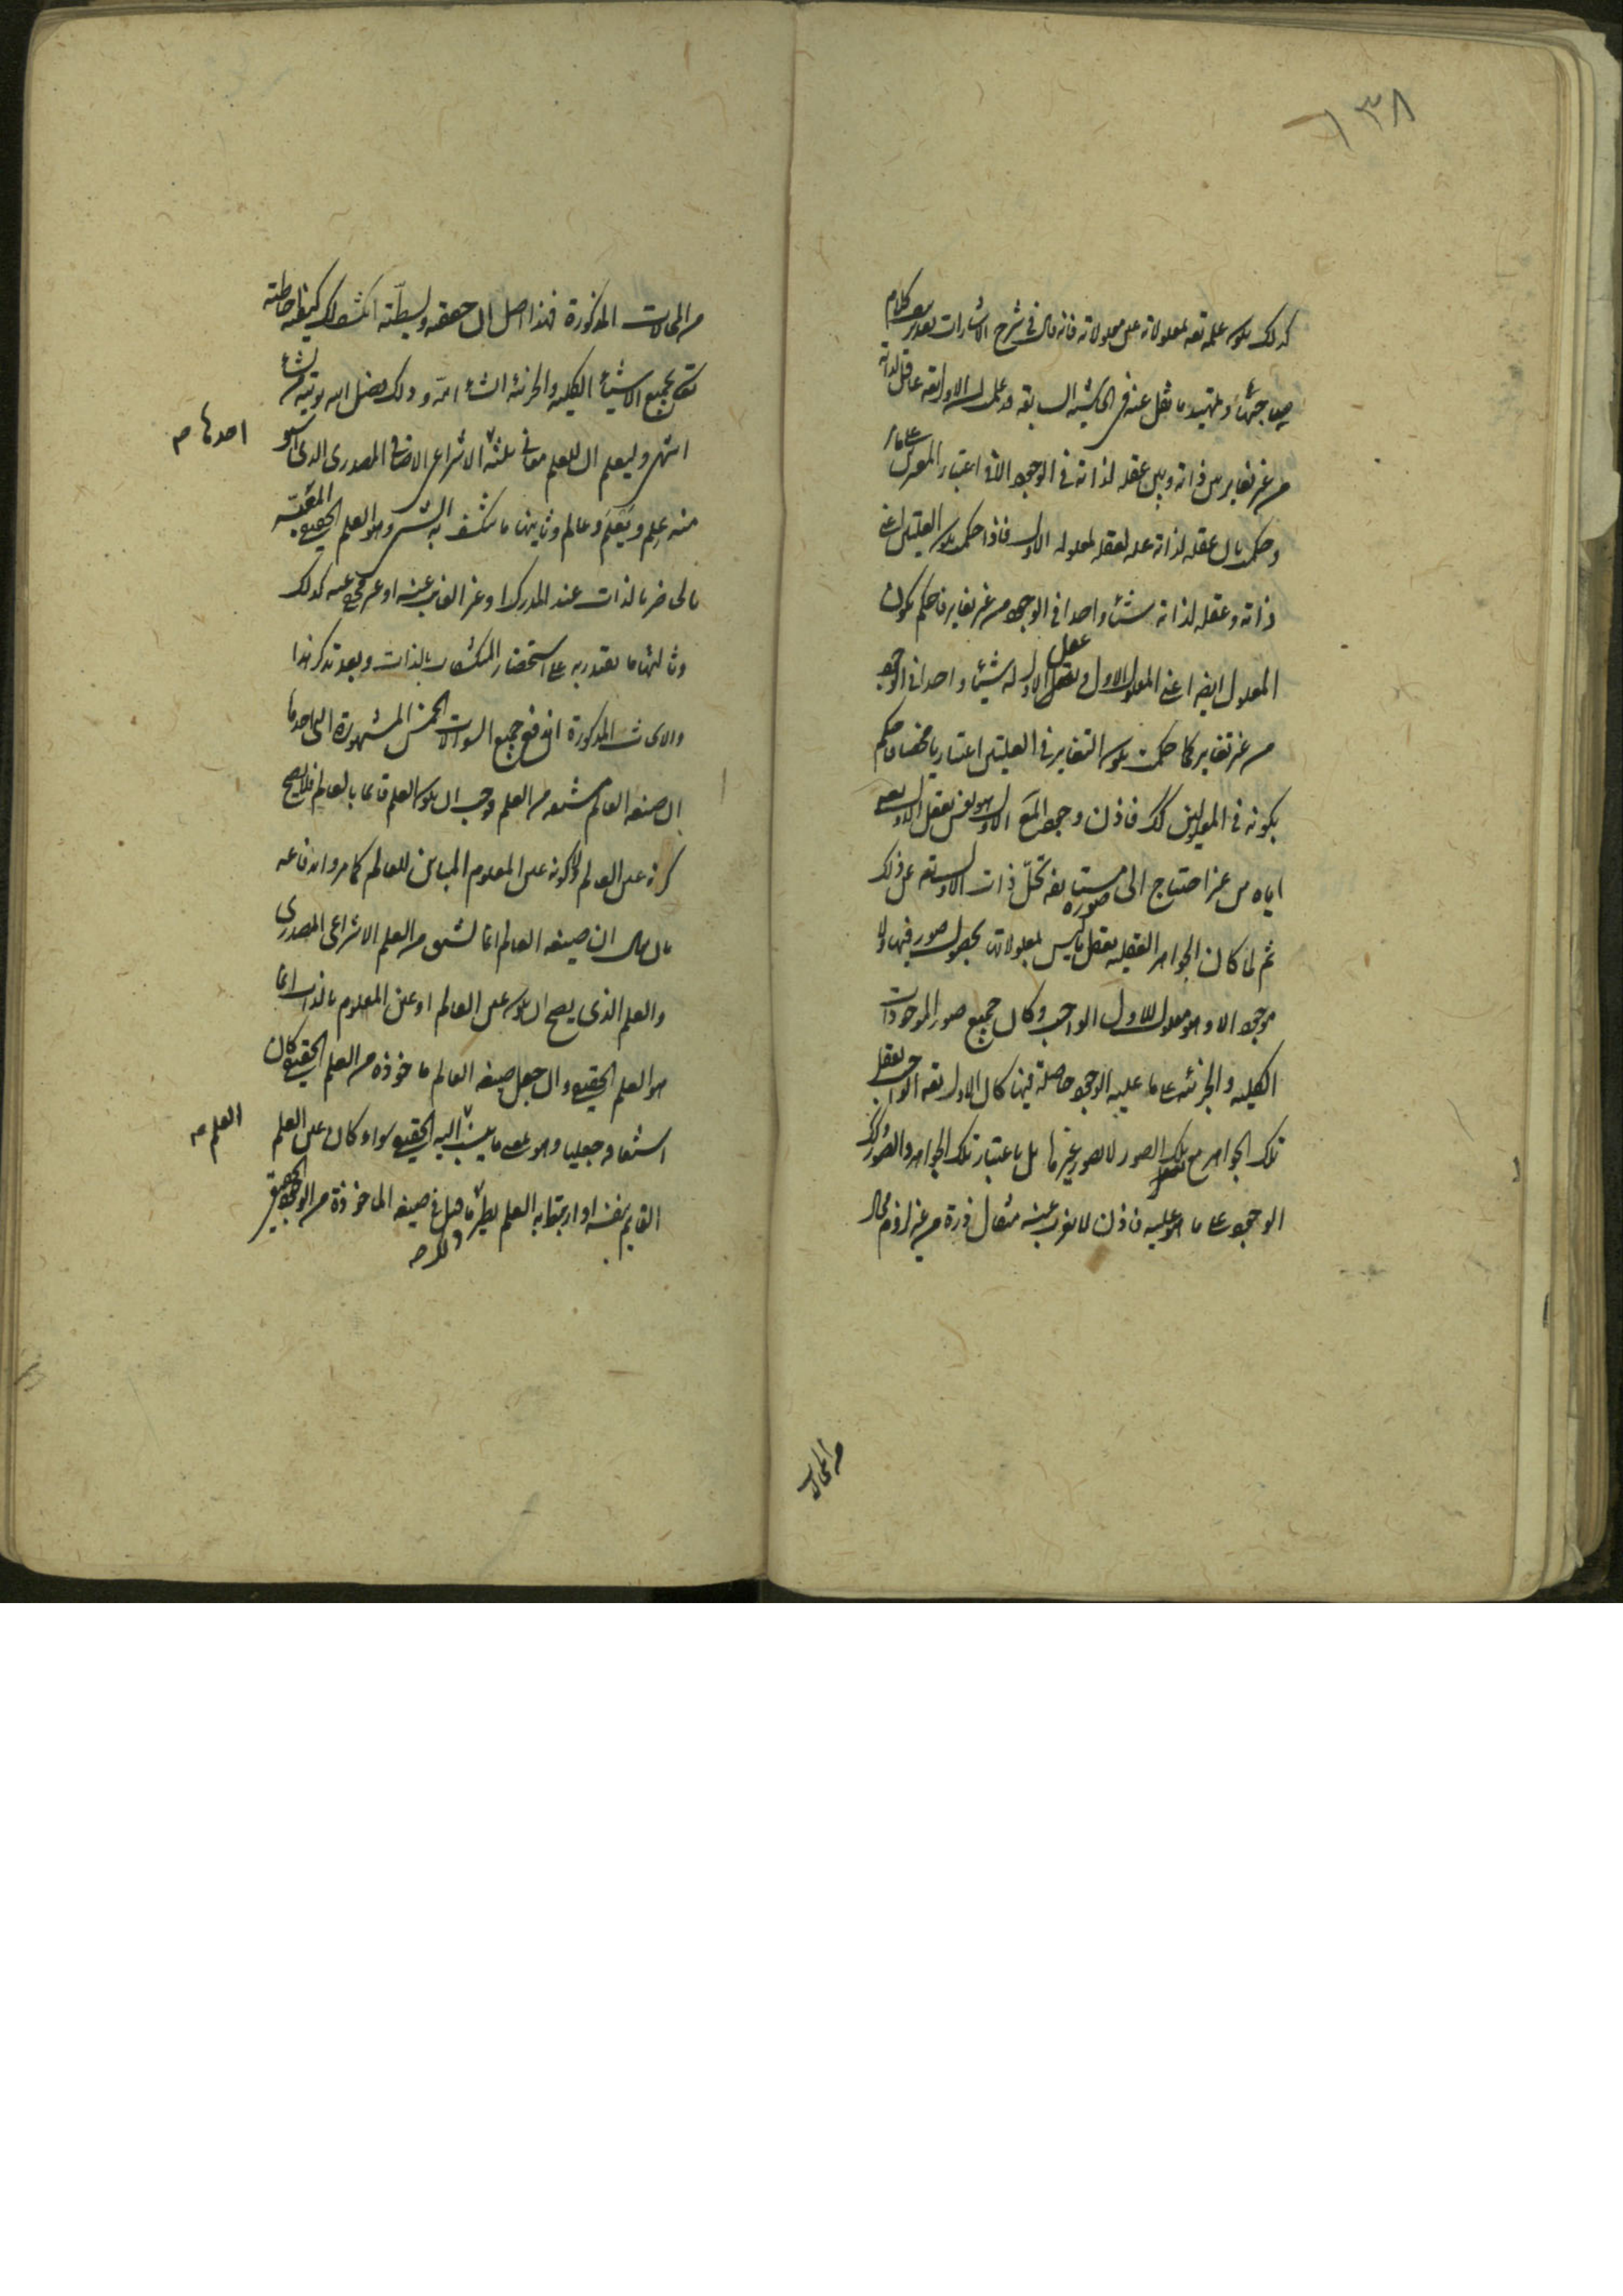 ١٣٨
كذلك يكون علمه تعه لمعلولاته عين معلولاته فانه قال في شرح الاشارات بعد تقرير كلام
صاحبها وتمهيد ما نقل عنه في الحاشية السابقة قد علمت ان الاول تعه عاقل لذاته
من غير تغاير بين ذاته وبين عقله لذاته في الوجود الا في اعتبار المعتبرين على ما مر
وحكمت بان عقله لذاته علة لعقله لمعلوله الاول فاذا حكمت بكون العلتين اعني
ذاته وعقله لذاته شيئا واحدا في الوجود من غير تغاير فاحكم بكون
المعلولين ايضا اعني المعلول الاول وعقل الاول له شيئا واحدا في الوجود
من غير تغاير فكما حكمت بكون التغاير في العلتين اعتباريا محضا فاحكم
بكونه في المعلولين كذلك فاذن وجود المع الاول هو نفس تعقل الاول تعه
اياه من غير احتياج الى صورة مستانفة تحل ذات الاول تعه عن ذلك
ثم لما كان الجواهر العقلية تعقل ما ليس بمعلولاتها بحصول صور فيها ولا
موجود الا وهو معلول للاول الواجب وكان جميع صور الموجودات
الكلية والجزئية على ما عليه الوجود حاصلة فيها كان الاول تعه الواجب يعقل
تلك الجواهر مع تلك الصور لا بصور غيرها بل باعتبار تلك الجواهر والصور وكذلك
الوجود على ما هو عليه فاذن لا يعزب عنه مثقال ذرة من غير لزوم محال
من المحالات
من المحالات المذكورة فهذا اصل ان حققته وبسطته انكشف لك كيفية احاطته
تعه بجميع الاشياء الكلية والجزئية انشاء الله وذلك فضل الله يؤتيه من يشاء
انتهى وليعلم ان للعلم معاني ثلثة الانتزاعي الاضافي المصدري الذي اشتق
احدها صح
منه علم ويعلم وعالم وثانيها ما ينكشف به الشيء وهو العلم الحقيقي المفسر
بالحاضر بالذات عند المدرك او غير الغايب عنه او غير محجوب عنه كذلك
وثالثها ما يقتدر به على استحضار المنكشفات بالذات وبعد تذكر هذا
والابحاث المذكورة اندفع جميع السوالات الخمس المشهورة التي احدها
ان صيغة العالم مشتقة من العلم وجب ان يكون العلم قائما بالعالم فلا يصح
كونه عين العالم ولا كونه عين المعلوم المباين للعالم كما مر واندفاعه
بان يقال ان صيغة العالم انما تشتق من العلم الانتزاعي المصدري
والعلم الذي يصح ان يكون عين العالم او عين المعلوم بالذات انما
هو العلم الحقيقي وان جعل صيغة العالم ماخوذة من العلم الحقيقي كان
اشتقاقه جعليا وهو بمعنى ما ينسب اليه الحقيقي سواء كان عين العلم
العلم صح
القايم بنفسه او ارتبط به العلم نظير ما قيل في صيغة الماخوذة من الوجود الحقيقي